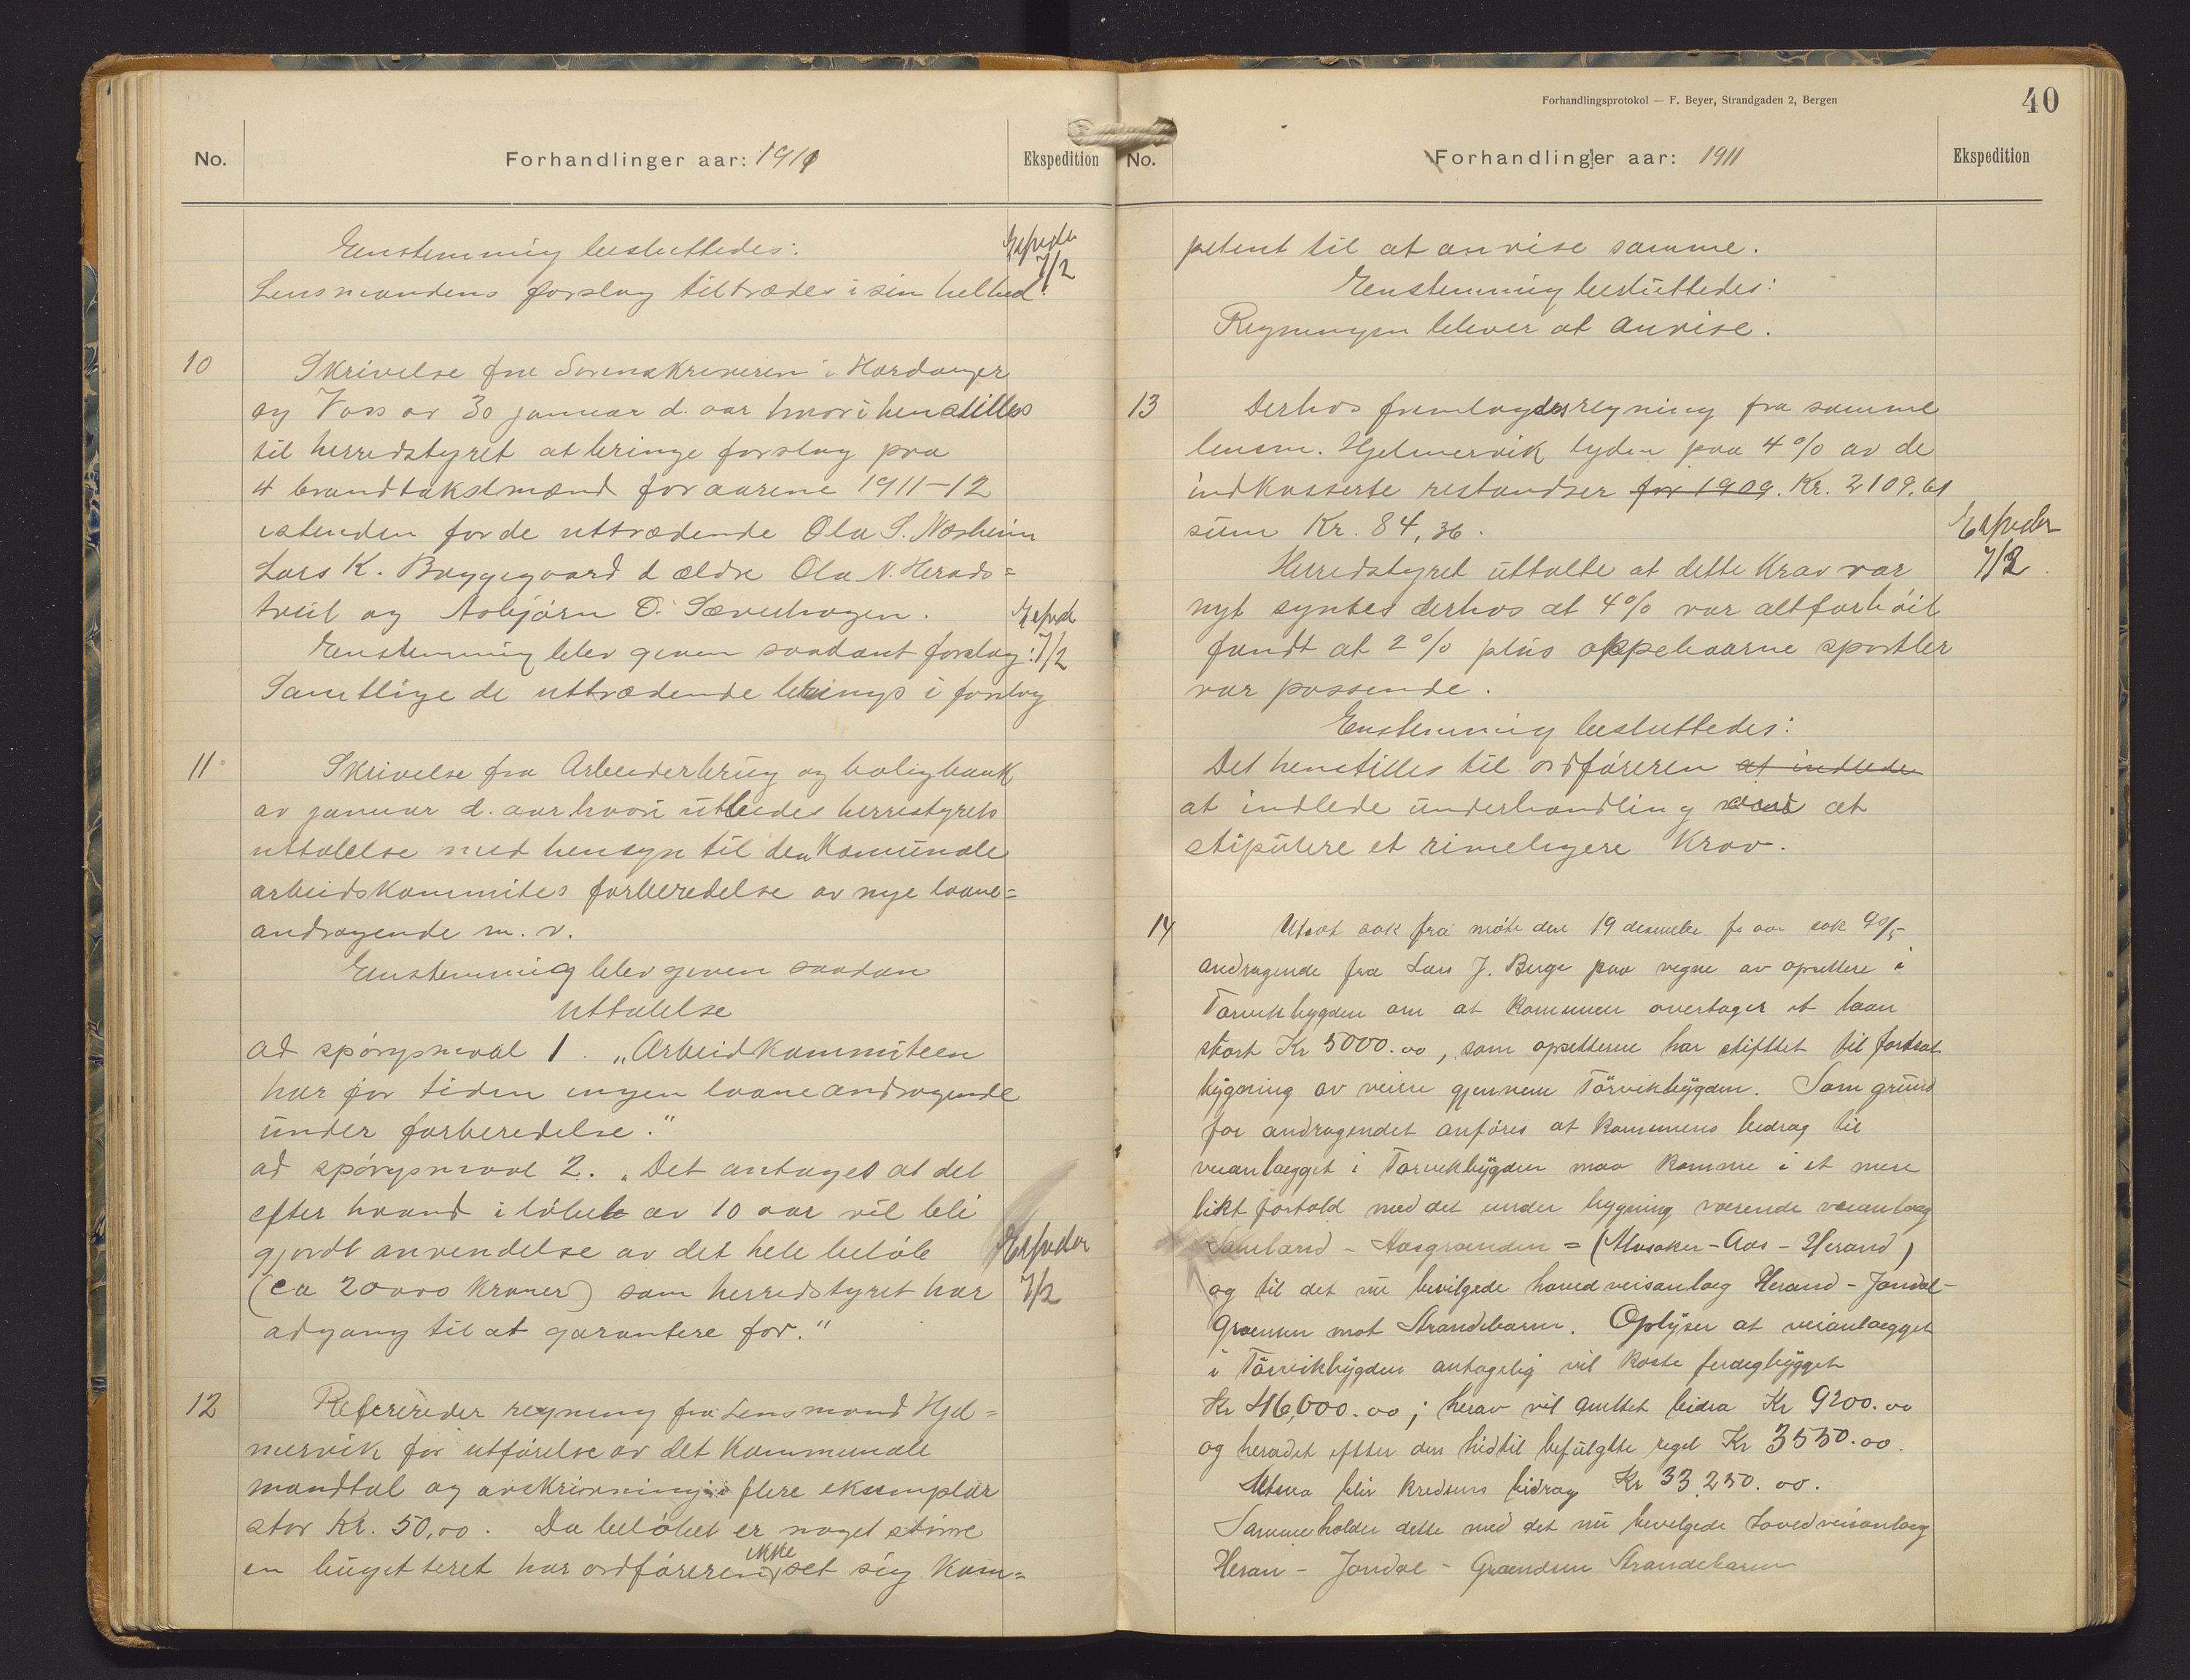 No.
Forhandlinger aar: 1911
Ekspedition
Enstemmig besluttedes:
Lensmandens forslag tiltrædes i sin helhed.
7/2
10
Skrivelse fra Sorenskriveren i Hardanger
og Voss av 30 januar d. aar hvori henstilles
til herredstyret at bringe forslag paa
4 brandtakstmænd for aarene 1911–12
istenden for de uttrædende Ola S. Næsheim
Lars K. Byggegaard d ældre Ola N. Herads=
tveit og Asbjørn O. Sæverhagen.
Eksped
Enstemmig blev given saadant forslag:
7/2
Samtlige de uttrædende bringes i forslag
11
Skrivelse fra Arbeiderbrug og boligbank
av januar d. aar hvori utbedes herrestyrets
uttalelse med hensyn til den Komunale
arbeidskommites forberedelse av nye laane=
andragende m. v.
Enstemmig blev given saadan
uttalelse
ad spørgsmaal 1. „Arbeidkommiteen
har for tiden ingen laaneandragende
under forberedelse."
ad spørgsmaal 2. „Det antages at det
efter haand i løbet av 10 aar vil bli
gjordt anvendelse av det hele beløb
Ekspeder
(ca 20000 kroner) som herredstyret har
7/2
adgang til at garantere for."
12
Refereredes regning fra Lensmand Hjel=
mervik for utførelse av det Kommunale
mandtal og avskrivning i flere eksemplar
stor Kr. 50,00. Da beløbet er noget større
en bugetteret har ordføreren ikke set sig Kom=
Forhandlingsprotokol — F. Beyer, Strandgaden 2, Bergen
40
No.
Forhandlinger aar: 1911
Ekspedition
petent til at anvise samme.
Enstemmig besluttedes:
Regningen bliver at anvise.
13
Derhos fremlagdes regning fra samme
lensm. Hjelmervik lyden paa 4 % av de
indkasserte restandser for 1909. Kr. 2109.61
sum Kr. 84,36.
Ekspeder
Herredstyret uttalte at dette Krav var
7/2
nyt syntes derhos at 4% var altfor høit
fandt at 2 % plus oppebaarne sportler
var passende.
Enstemmig besluttedes:
Det henstilles til ordføreren at indlede
at indlede underhandling at
stipulere et rimeligere Krav.
14
Utsat sak fra møte den 19 desember f. aar sak
andragende fra Lars J. Berge paa vegne av opsittere i
Tørvikbygden om at Komunen overtager et laan
stort Kr 5000.00, som opsitterne har stiftet til fortsat
bygning av veien gjennem Tørvikbygden. Som grund
for andragendet anføres at kommunens bedrag til
veianlægget i Tørvikbygden maa komme i et mere
likt forhold med det under bygning værende veianlæg
Samland – Aasgrænden = (Alvsaker – Aas – Herand)
og til det nu bevilgede hoved veisanlæg Herand – Jondal –
Grænsen mot Strandebarm. Oplyser at veianlægget
i Tørvikbygden antagelig vil koste ferdegbygget
Kr 46,000.00; herav vil amtet bidra Kr 9200.00
og heradet efter den hidtil befulgte regel Kr 3550.00.
Altsaa blir kredsens bidrag Kr 33,250.00.
Sammeholder dette med det nu bevilgede hovedveisanlæg
Heran – Jondal – Grændsen Strandebarm